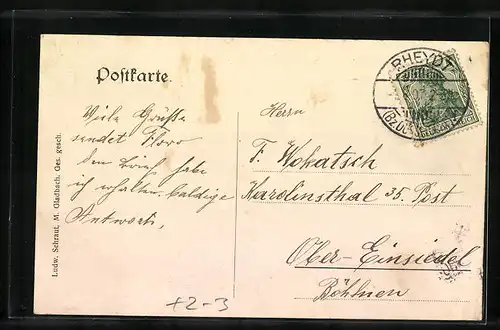 Postkarte.
Viele Grüße
sendet Flora
den Brief habe
ich erhalten baldige
Antwort,
Ludw. Schraut, M. Gladbach. Ges. gesch.
Herrn
F. Wokatsch
Karolinsthal 35. Post
Ober-Einsiedel
Böhmen
RHEYDT
+2-3